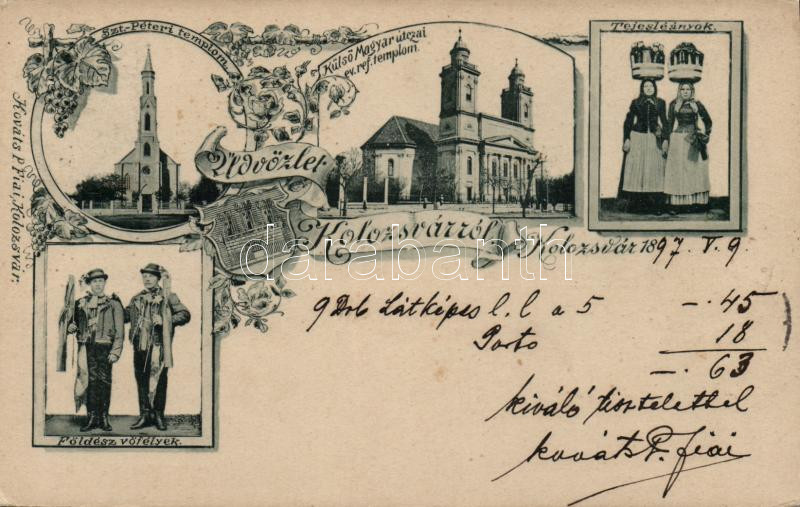 Szt-Péteri templom.
Külső Magyar útczai
ev. ref. templom.
Tejesleányok.
Kováts P. Fiai, Kolozsvár.
Üdvözlet
Kolozsvárról
Kolozsvár 1897. V. 9.
darabanth
9 Drb Látképes l. l a 5 -. 45
Porto 18
-. 63
kiváló tisztelettel
Kováts P. fiai
Földész vőfélyek.